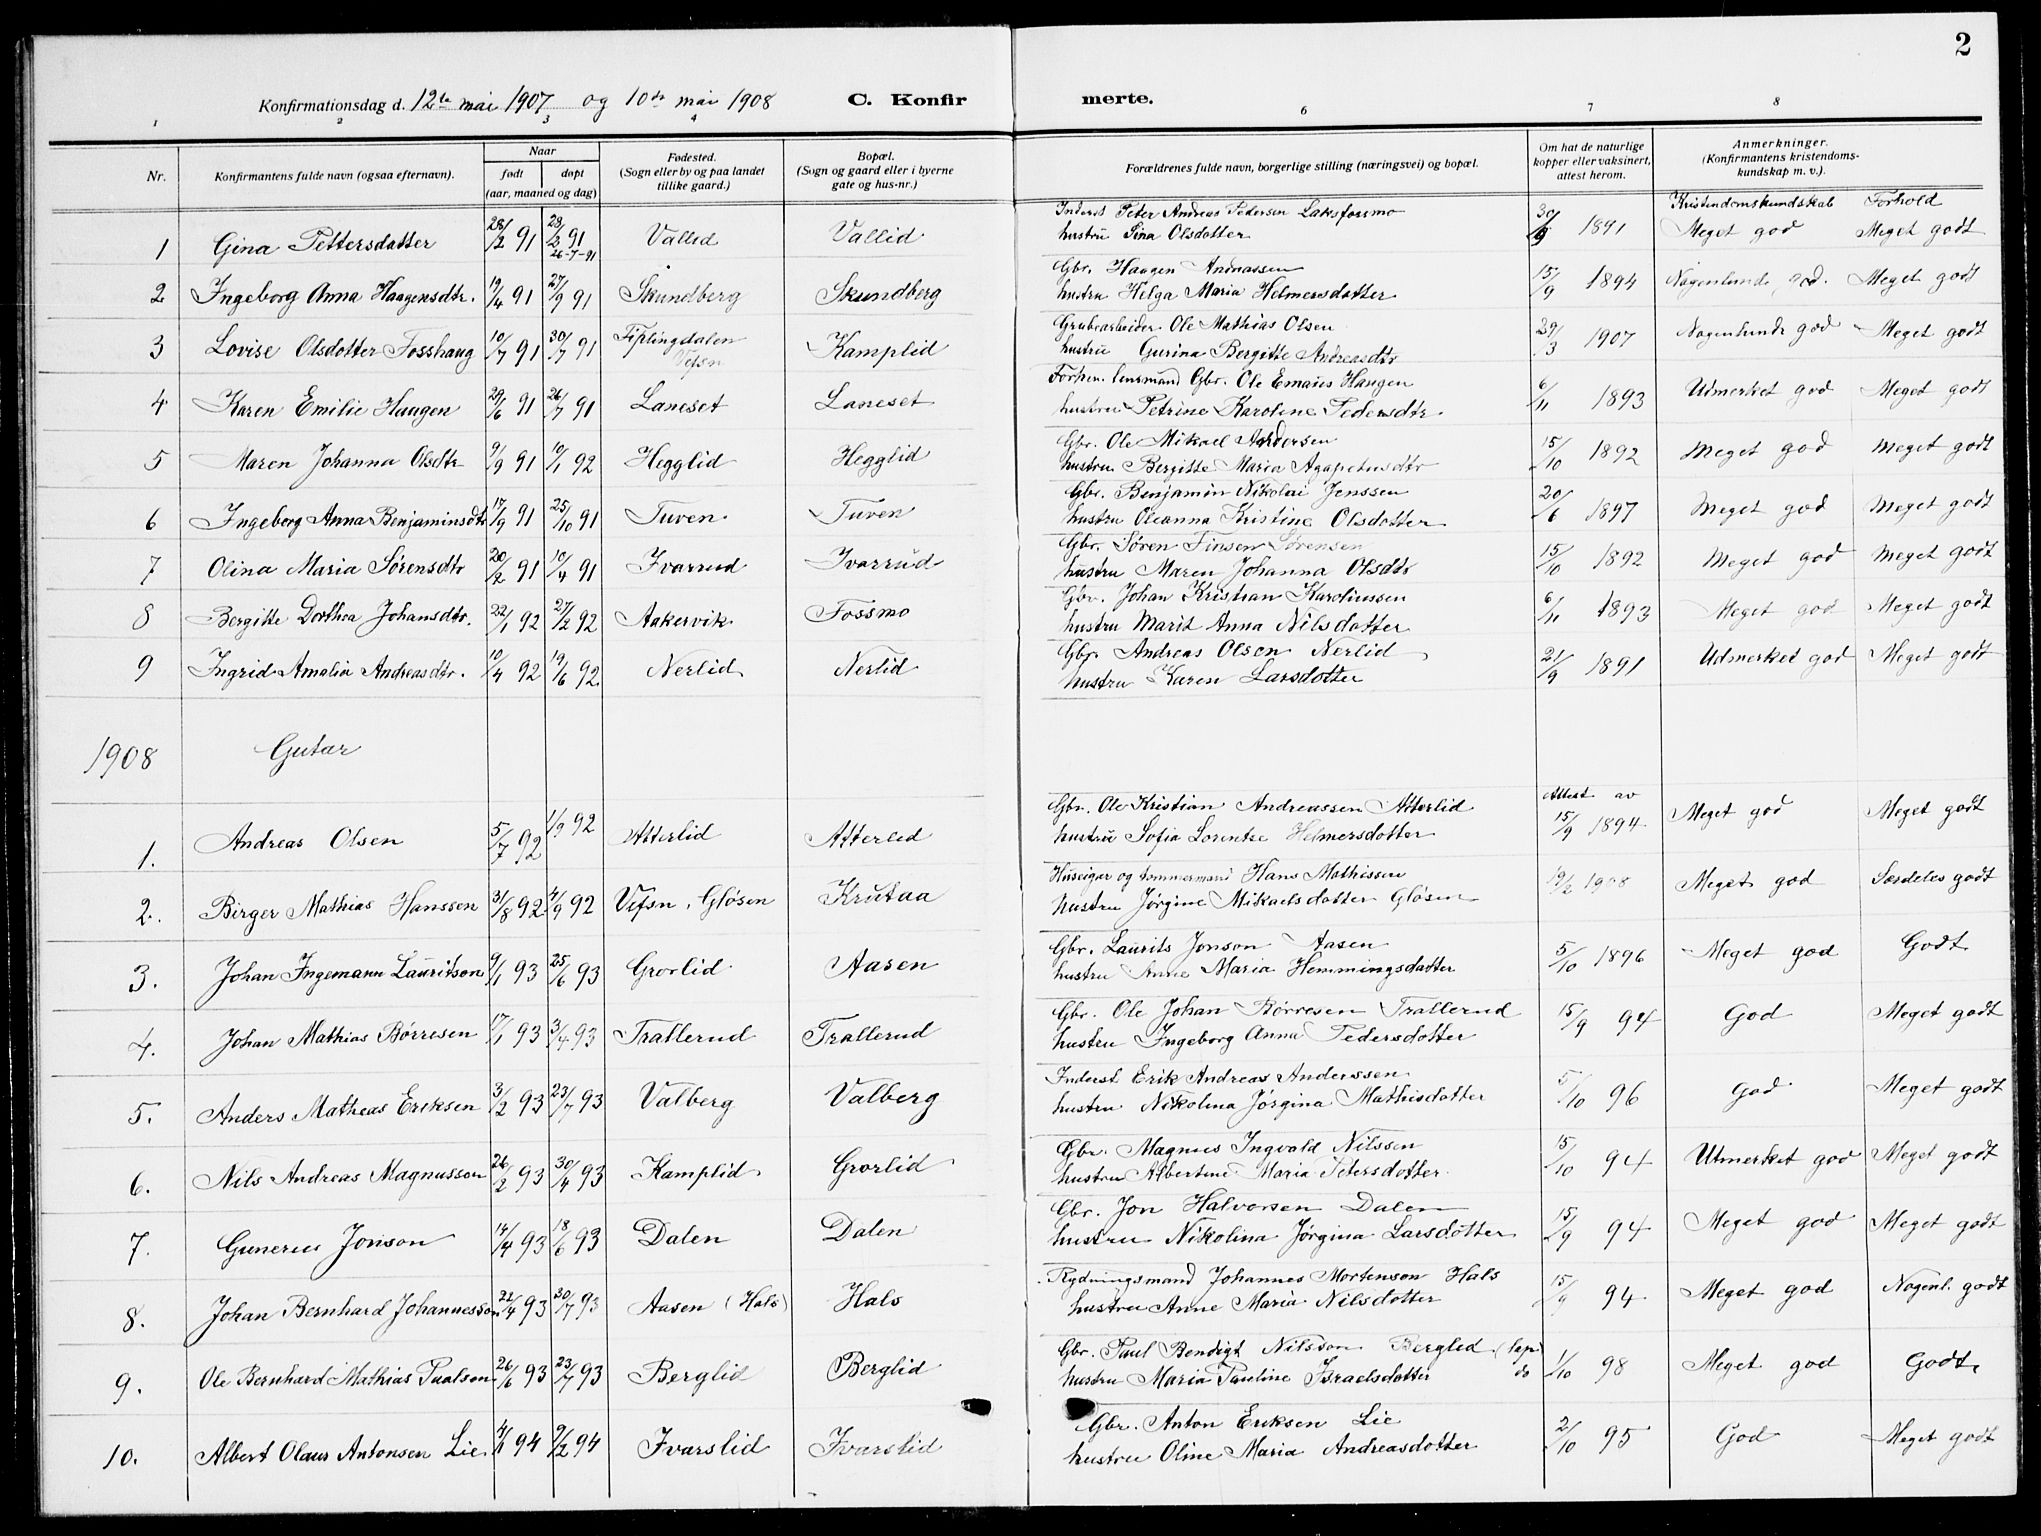 2
Konfirmationsdag d. 12te mai 1907 og 10de mai 1908 C. Konfirmerte.
1 2 3 4 6 7 8
Nr. Konfirmantens fulde navn (ogsaa efternavn). Naar født døpt (aar, maaned og dag) Fødested. (Sogn eller by og paa landet tillike gaard.) Bopæl. (Sogn og gaard eller i byerne gate og hus-nr.) Forældrenes fulde navn, borgerlige stilling (næringsvei) og bopæl. Om hat de naturlige kopper eller vaksinert, attest herom. Anmerkninger. (Konfirmantens kristendomskundskap m. v.).
Kristendomskundskab Forhold
1 Gina Pettersdatter 28/2 91 29/2 91 26-7-91 Vallid Vallid Inderst Peter Andreas Pedersen Laksforsmo hustru Sina Olsdatter 30/9 1891 Meget god Meget godt
2 Ingeborg Anna Haagensdtr. 19/4 91 27/9 91 Skundberg Skundberg Gbr. Haagen Andreassen hustru Helga Maria Helmersdatter 15/9 1894 Nogenlunde god. Meget godt
3 Lovise Olsdatter Fosshaug 10/7 91 30/7 91 Fiplingdalen Vefsn Kamplid Grubearbeider Ole Mathias Olsen hustru Gurina Bergitte Andreasdtr 29/3 1907 Nogenlunde god Meget godt
4 Karen Emilie Haugen 29/6 91 26/7 91 Laneset Laneset Forhen. lensmand Gbr. Ole Emaus Haugen hustru Petrine Karoline Pedersdtr. 6/11 1893 Udmerket god Meget godt
5 Maren Johanna Olsdtr 9/9 91 10/1 92 Hegglid Hegglid Gbr. Ole Mikael Andersen hustru Bergitte Maria Agapetusdtr 15/10 1892 Meget god Meget godt
6 Ingeborg Anna Benjaminsdtr 17/9 91 25/10 91 Tuven Tuven Gbr. Benjamin Nikolai Jenssen hustru Oleanna Kristine Olsdatter 20/6 1897 Meget god Meget godt
7 Olina Maria Sørensdtr 20/2 91 10/4 91 Ivarrud Ivarrud Gbr. Søren Finsen Sørensen hustru Maren Johanna Olsdtr 15/10 1892 Meget god Meget godt
8 Bergitte Dorthea Johansdtr. 22/1 92 27/2 92 Aakervik Fossmo Gbr. Johan Kristian Karoliussen hustru Marit Anna Nilsdatter 6/11 1893 Meget god Meget godt
9 Ingrid Amalia Andreasdtr. 10/4 92 19/6 92 Nerlid Nerlid Gbr. Andreas Olsen Nerlid hustru Karen Larsdatter 21/9 1891 Udmerket god Meget godt
1908 Gutar
1. Andreas Olsen 5/7 92 1/9 92 Atterlid Atterlid Gbr. Ole Kristian Andreassen Atterlid hustru Sofia Lorentze Helmersdatter Attest av 15/9 1894 Meget god Meget godt
2. Birger Mathias Hanssen 31/8 92 4/9 92 Vefsn, Gløsen Krutaa Huseigar og tommermand Hans Mathissen hustru Jørgine Mikaelsdatter Gløsen 19/2 1908 Meget god Særdeles godt
3. Johan Ingemann Lauritson 9/1 93 25/6 93 Grorlid Aasen Gbr. Laurits Jonson Aasen hustru Anne Maria Hemmingsdatter 5/10 1896 Meget god Godt
4. Johan Mathias Børresen 17/1 93 3/4 93 Trallerud Trallerud Gbr. Ole Johan Børresen Trallerud hustru Ingeborg Anna Pedersdatter 15/9 94 God Meget godt
5. Anders Matheas Eriksen 3/2 93 23/7 93 Valberg Valberg Inderst Erik Andreas Anderssen hustru Nikolina Jørgina Mathisdatter 5/10 96 God Meget godt
6. Nils Andreas Magnusson 26/2 93 30/4 93 Kamplid Grorlid Gbr. Magnus Ingvald Nilssen hustru Albertine Maria Petersdatter 15/10 94 Utmerket god Meget godt
7. Gunerius Jonson 14/4 93 18/6 93 Dalen Dalen Gbr. Jon Halvorsen Dalen hustru Nikolina Jørgina Larsdatter 15/9 94 Meget god Meget godt
8. Johan Bernhard Johannesson 21/4 93 30/7 93 Aasen (Hals) Hals Rydningsmand Johannes Mortenson Hals hustru Anne Maria Nilsdatter 15/9 94 Meget god Nogenl. godt
9. Ole Bernhard Mathias Paalsen 26/6 93 23/7 93 Berglid Berglid Gbr. Paul Bendigt Nilsson Berglid (lap) hustru Maria Pauline Israelsdatter do 1/10 98 Meget god Godt
10. Albert Olaus Antonsen Lie 4/1 94 9/2 94 Ivarslid Ivarslid Gbr. Anton Eriksen Lie hustru Oline Maria Andreasdatter 2/10 95 God Meget godt